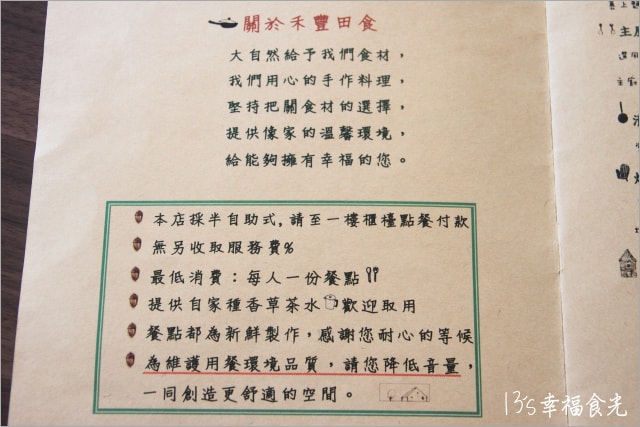 關於禾豐田食
大自然給予我們食材，
我們用心的手作料理，
堅持把關食材的選擇，
提供像家的溫馨環境，
給能夠擁有幸福的您。
本店採半自助式，請至一樓櫃檯點餐付款
無另收取服務費%
最低消費：每人一份餐點
提供自家種香草茶水歡迎取用
餐點都為新鮮製作，感謝您耐心的等候
為維護用餐環境品質，請您降低音量，
一同創造更舒適的空間。
13's幸福食光